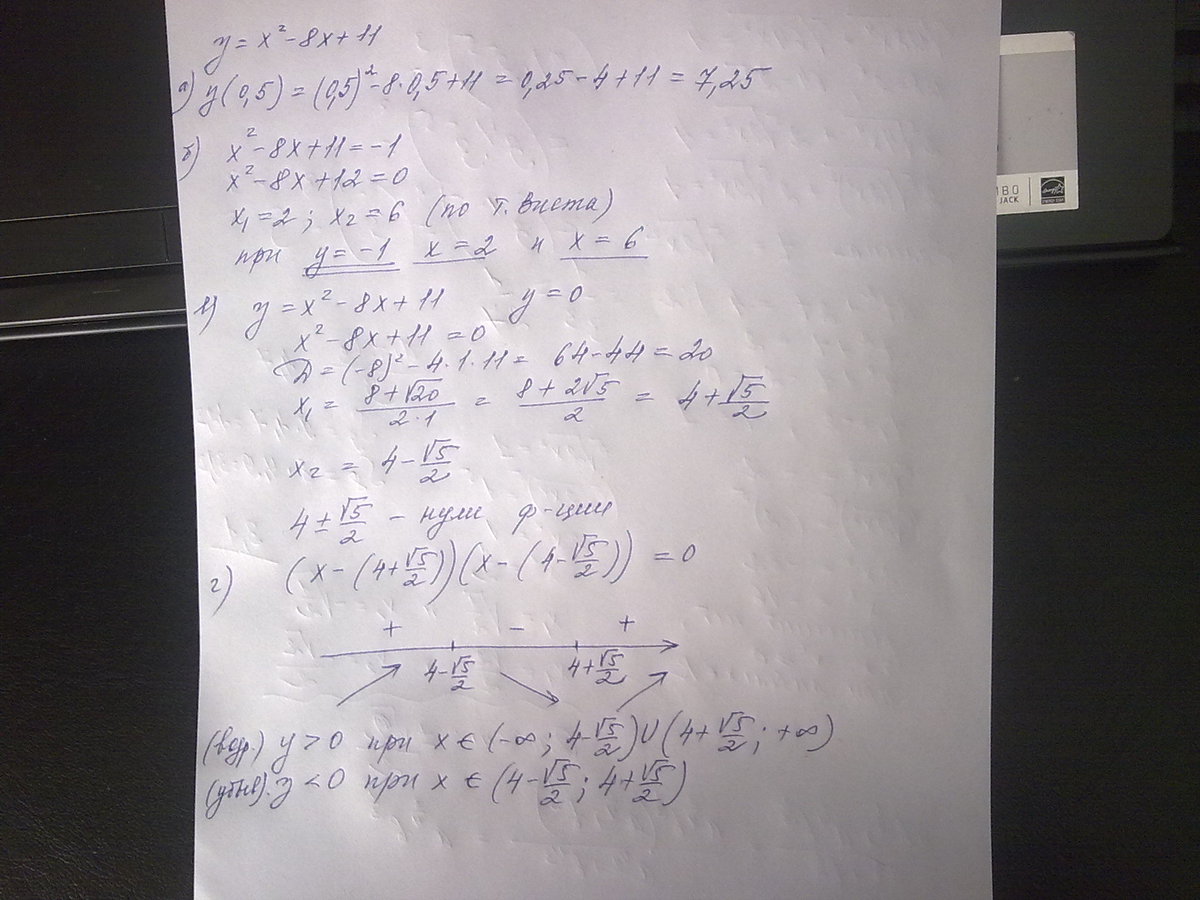 y = x² - 8x + 11
а) y(0,5) = (0,5)² - 8·0,5 + 11 = 0,25 - 4 + 11 = 7,25
б) x² - 8x + 11 = -1
x² - 8x + 12 = 0
x₁ = 2; x₂ = 6 (по т. Виета)
при y = -1 x = 2 и x = 6
в) y = x² - 8x + 11 y = 0
x² - 8x + 11 = 0
D = (-8)² - 4·1·11 = 64 - 44 = 20
x₁ = (8+√20)/(2·1) = (8+2√5)/2 = 4 + √5/2
x₂ = 4 - √5/2
4 ± √5/2 - нули ф-ции
г) (x - (4+√5/2))(x - (4-√5/2)) = 0
+ - +
4-√5/2 4+√5/2
(возр.) y > 0 при x ∈ (-∞; 4-√5/2) U (4+√5/2; +∞)
(убыв). y < 0 при x ∈ (4-√5/2; 4+√5/2)
JACK